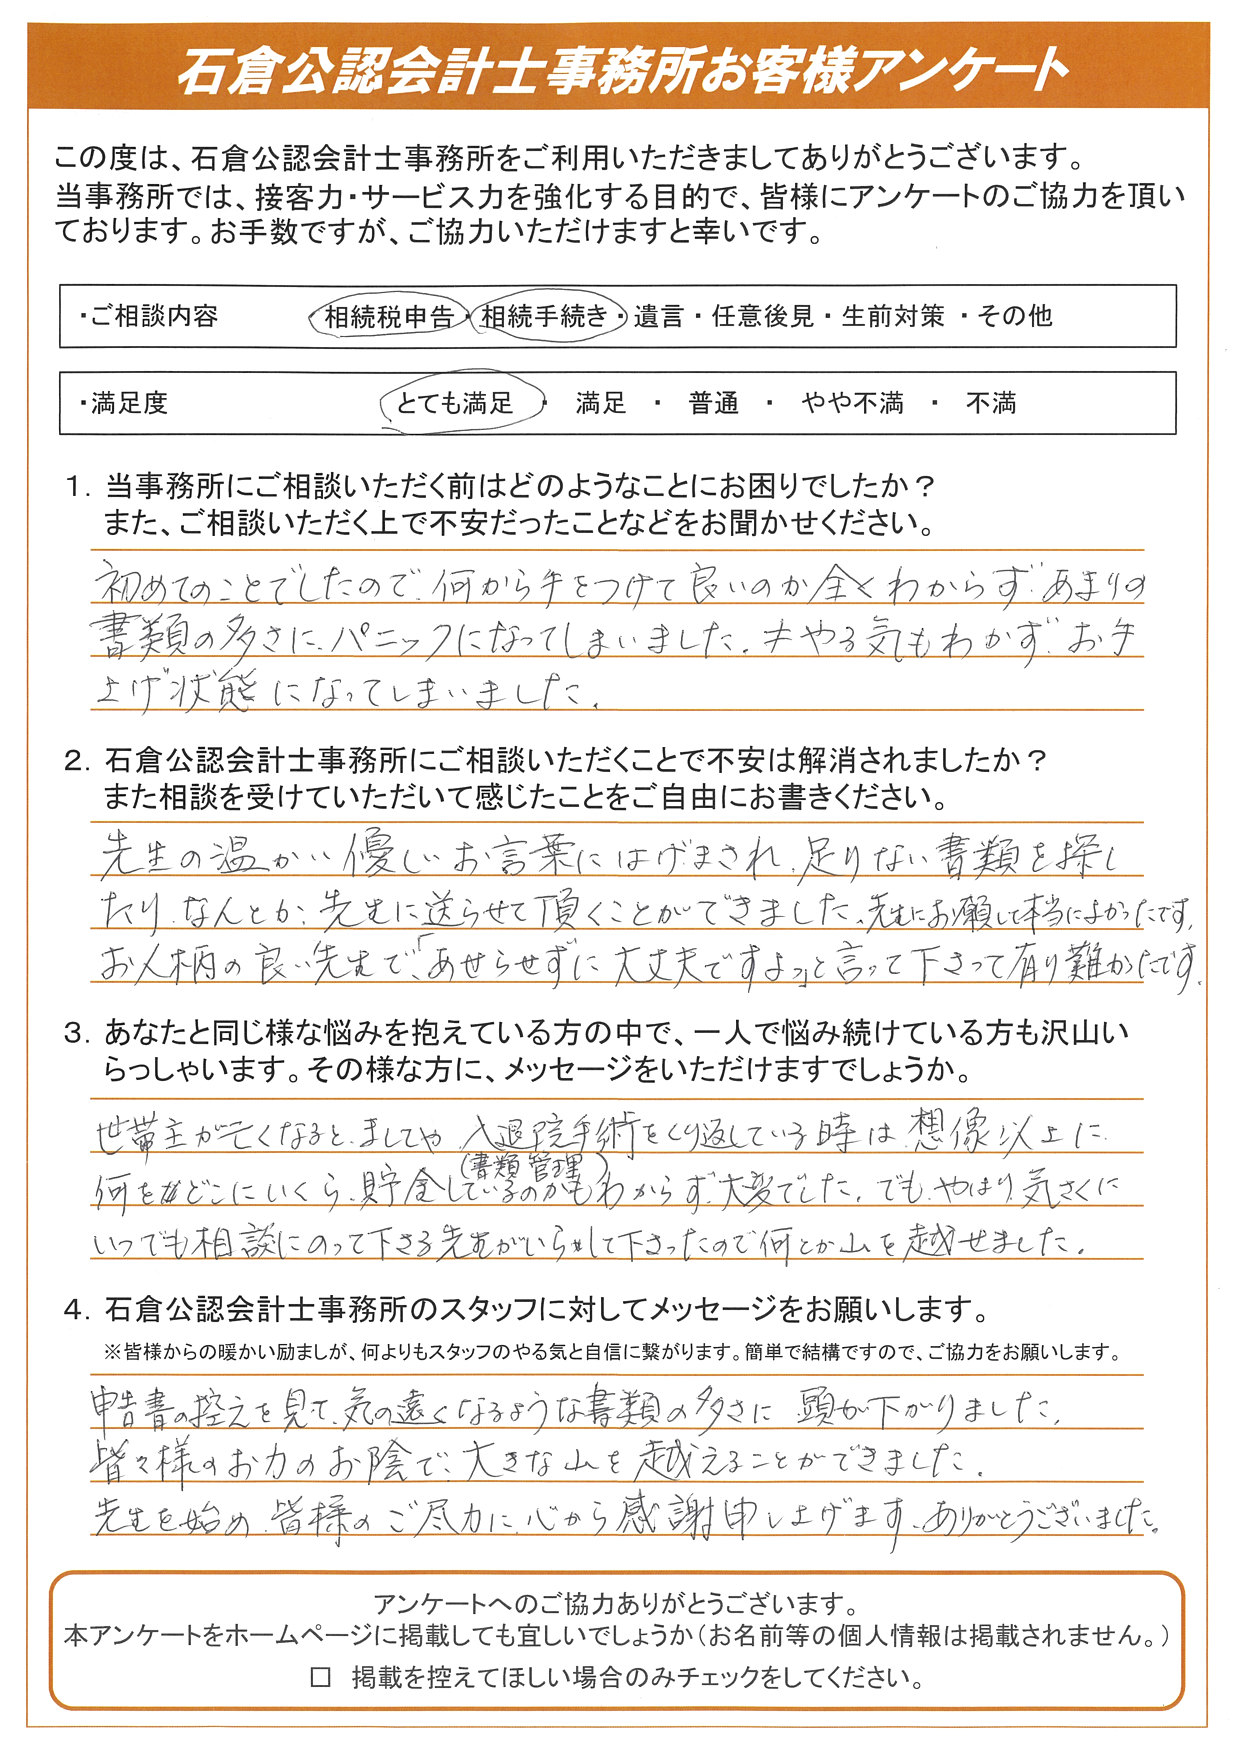 石倉公認会計士事務所お客様アンケート
この度は、石倉公認会計士事務所をご利用いただきましてありがとうございます。
当事務所では、接客力・サービス力を強化する目的で、皆様にアンケートのご協力を頂い
ております。お手数ですが、ご協力いただけますと幸いです。
・ご相談内容　相続税申告・相続手続き・遺言・任意後見・生前対策・その他
・満足度　とても満足・満足・普通・やや不満・不満
1. 当事務所にご相談いただく前はどのようなことにお困りでしたか？
また、ご相談いただく上で不安だったことなどをお聞かせください。
初めてのことでしたので、何から手をつけて良いのか全くわからず、あまりの
書類の多さに、パニックになってしまいました。やる気もわかず、お手
上げ状態になってしまいました。
2. 石倉公認会計士事務所にご相談いただくことで不安は解消されましたか？
また相談を受けていただいて感じたことをご自由にお書きください。
先生の温かい優しいお言葉にはげまされ、足りない書類を探し
たり、なんとか、先生に送らせて頂くことができました。先生にお願いして本当によかったです。
お人柄の良い先生で、「あせらせずに大丈夫ですよ」と言って下さって有り難かったです。
3. あなたと同じ様な悩みを抱えている方の中で、一人で悩み続けている方も沢山い
らっしゃいます。その様な方に、メッセージをいただけますでしょうか。
世帯主が亡くなると、ましてや入退院手術をくり返している時は想像以上に
(書類管理)
何をどこにいくら、貯金しているのかもわからず、大変でした。でも、やはり、気さくに
いつでも相談にのって下さる先生がいらして下さったので何とか山を越せました。
4. 石倉公認会計士事務所のスタッフに対してメッセージをお願いします。
※皆様からの暖かい励ましが、何よりもスタッフのやる気と自信に繋がります。簡単で結構ですので、ご協力をお願いします。
申告書の控えを見て、気の遠くなるような書類の多さに頭が下がりました。
皆々様のお力のお陰で、大きな山を越えることができました。
先生を始め、皆様のご尽力に、心から感謝申し上げます。ありがとうございました。
アンケートへのご協力ありがとうございます。
本アンケートをホームページに掲載しても宜しいでしょうか（お名前等の個人情報は掲載されません。）
□ 掲載を控えてほしい場合のみチェックをしてください。